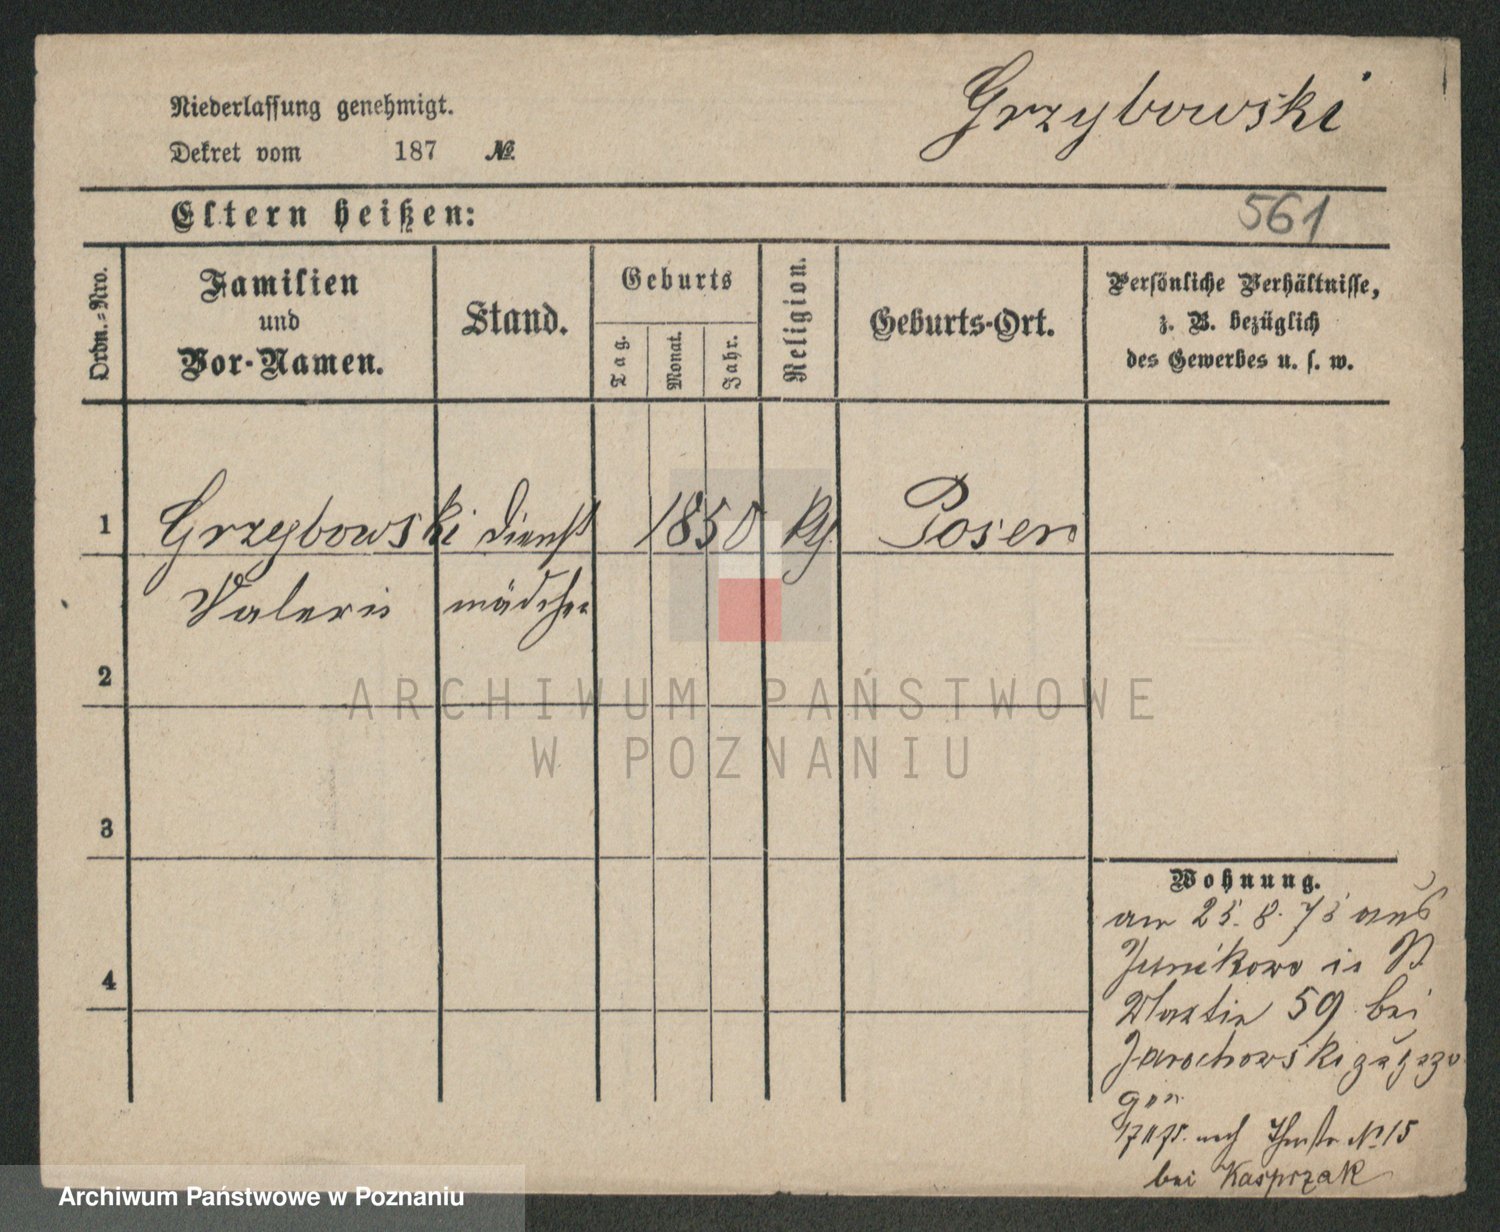 Niederlassung genehmigt.
Dekret vom 187 №
Grzybowski
Eltern heißen:
561
Ordn.-Nro.
Familien
und
Vor-Namen.
Stand.
Geburts
Tag.
Monat.
Jahr.
Religion.
Geburts-Ort.
Persönliche Verhältnisse,
z. B. bezüglich
des Gewerbes u. s. w.
1 Grzybowski Dienst 1850 Posen
Valerie mädchen
2
ARCHIWUM PAŃSTWOWE
W POZNANIU
3
4
Wohnung.
am 25. 8. 75 aus
Junikowo in St
Martin 59 bei
Jarochowski zugezo
gen
nach № 15
bei Kasprzak
Archiwum Państwowe w Poznaniu